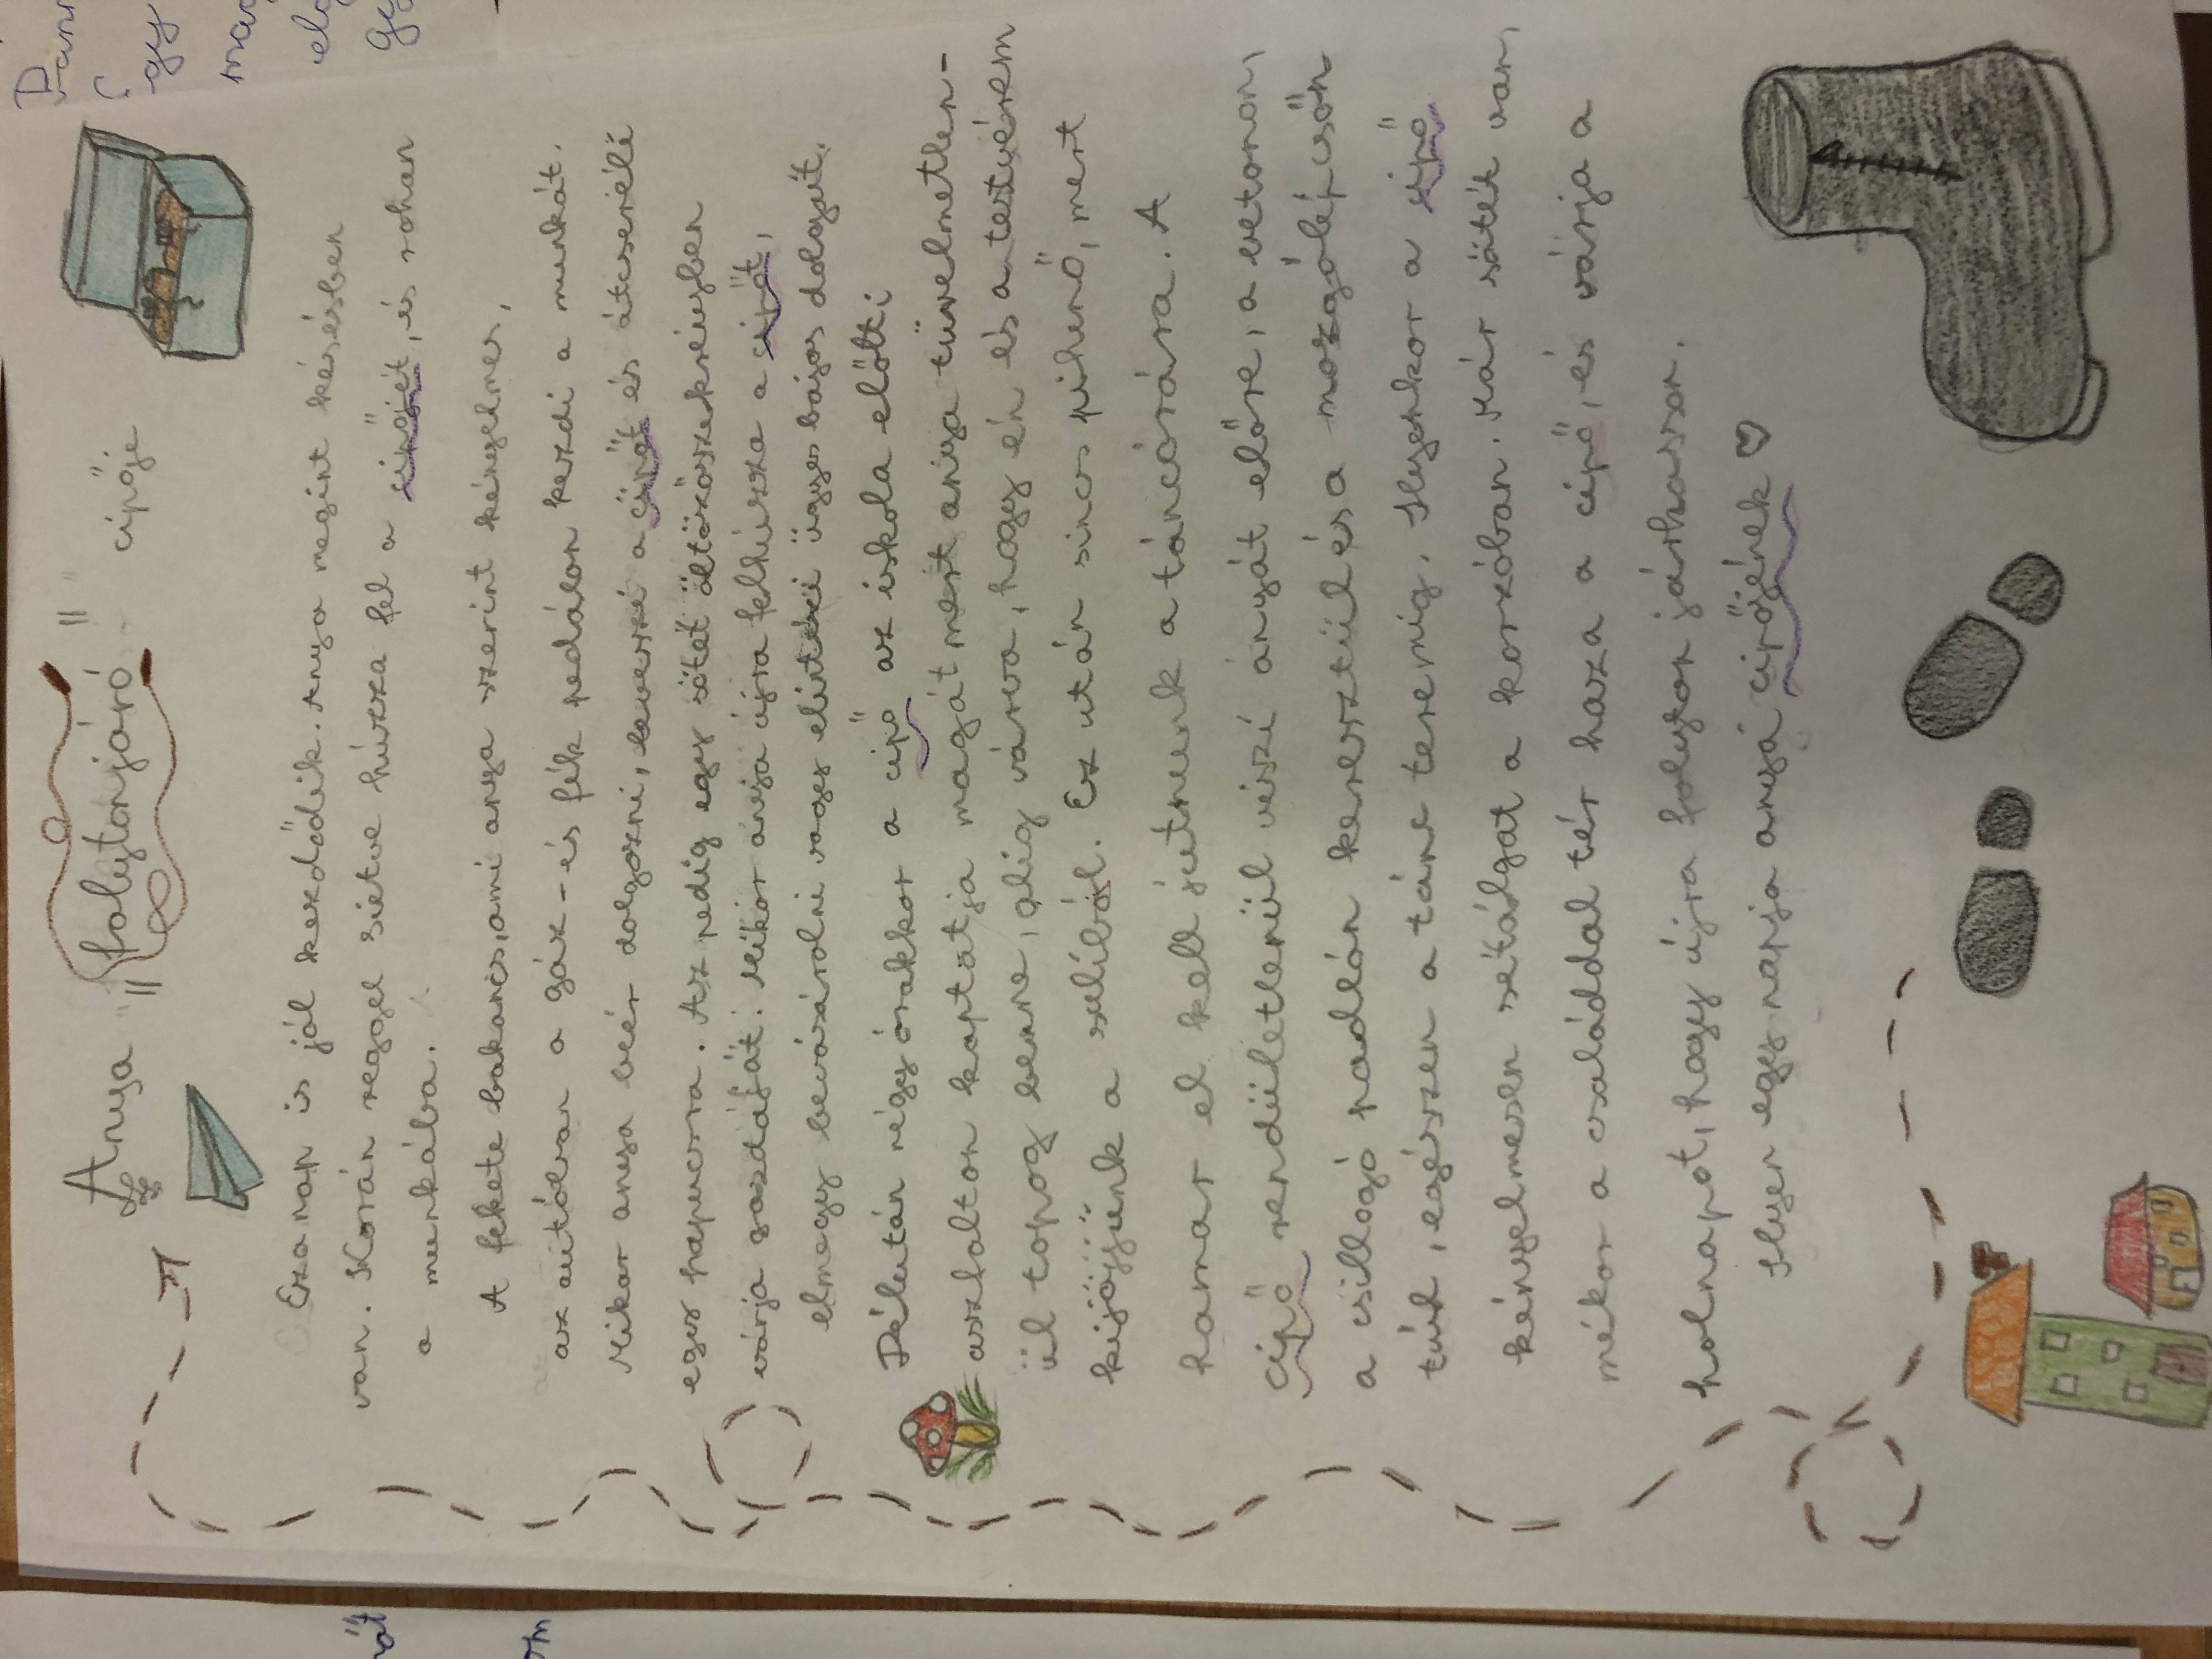 Anya "folytonjáró" cipője
Ez a nap is jól kezdődik. Anya megint késésben
van. Korán reggel sietve húzza fel a cipőjét, és rohan
a munkába.
A fekete bakancs, ami anya szerint kényelmes,
az autóban a gáz- és fék pedálon kezdi a munkát.
Mikor anya beér dolgozni, leveszi a cipőt és átcseréli
egy papucsra. Az pedig egy sötét öltözőszekrényben
várja gazdáját. Mikor anya újra felhúzza a cipőt,
elmegy bevásárolni vagy elintézi ügyes bajos dolgait.
Délután négy órakkor a cipő az iskola előtti
aszfalton koptatja magát mert anya türelmetlen-
ül topog benne, alig várva, hogy én és a testvérem
kijöjjünk a suliból. Ez után sincs pihenő, mert
hamar el kell jutnunk a táncórára. A
cipő rendületlenül viszi anyát előre, a betonon,
a csillogó padlón keresztül és a mozgólépcsőn
túl, egészen a tánc teremig. Ilyenkor a cipő
kényelmesen sétálgat a korzóban. Már sötét van,
mékor a családdal tér haza a cipő, és várja a
holnapot, hogy újra folyton járhasson.
Ilyen egy napja anya cipőjének ♡
Dann
egy
át
om